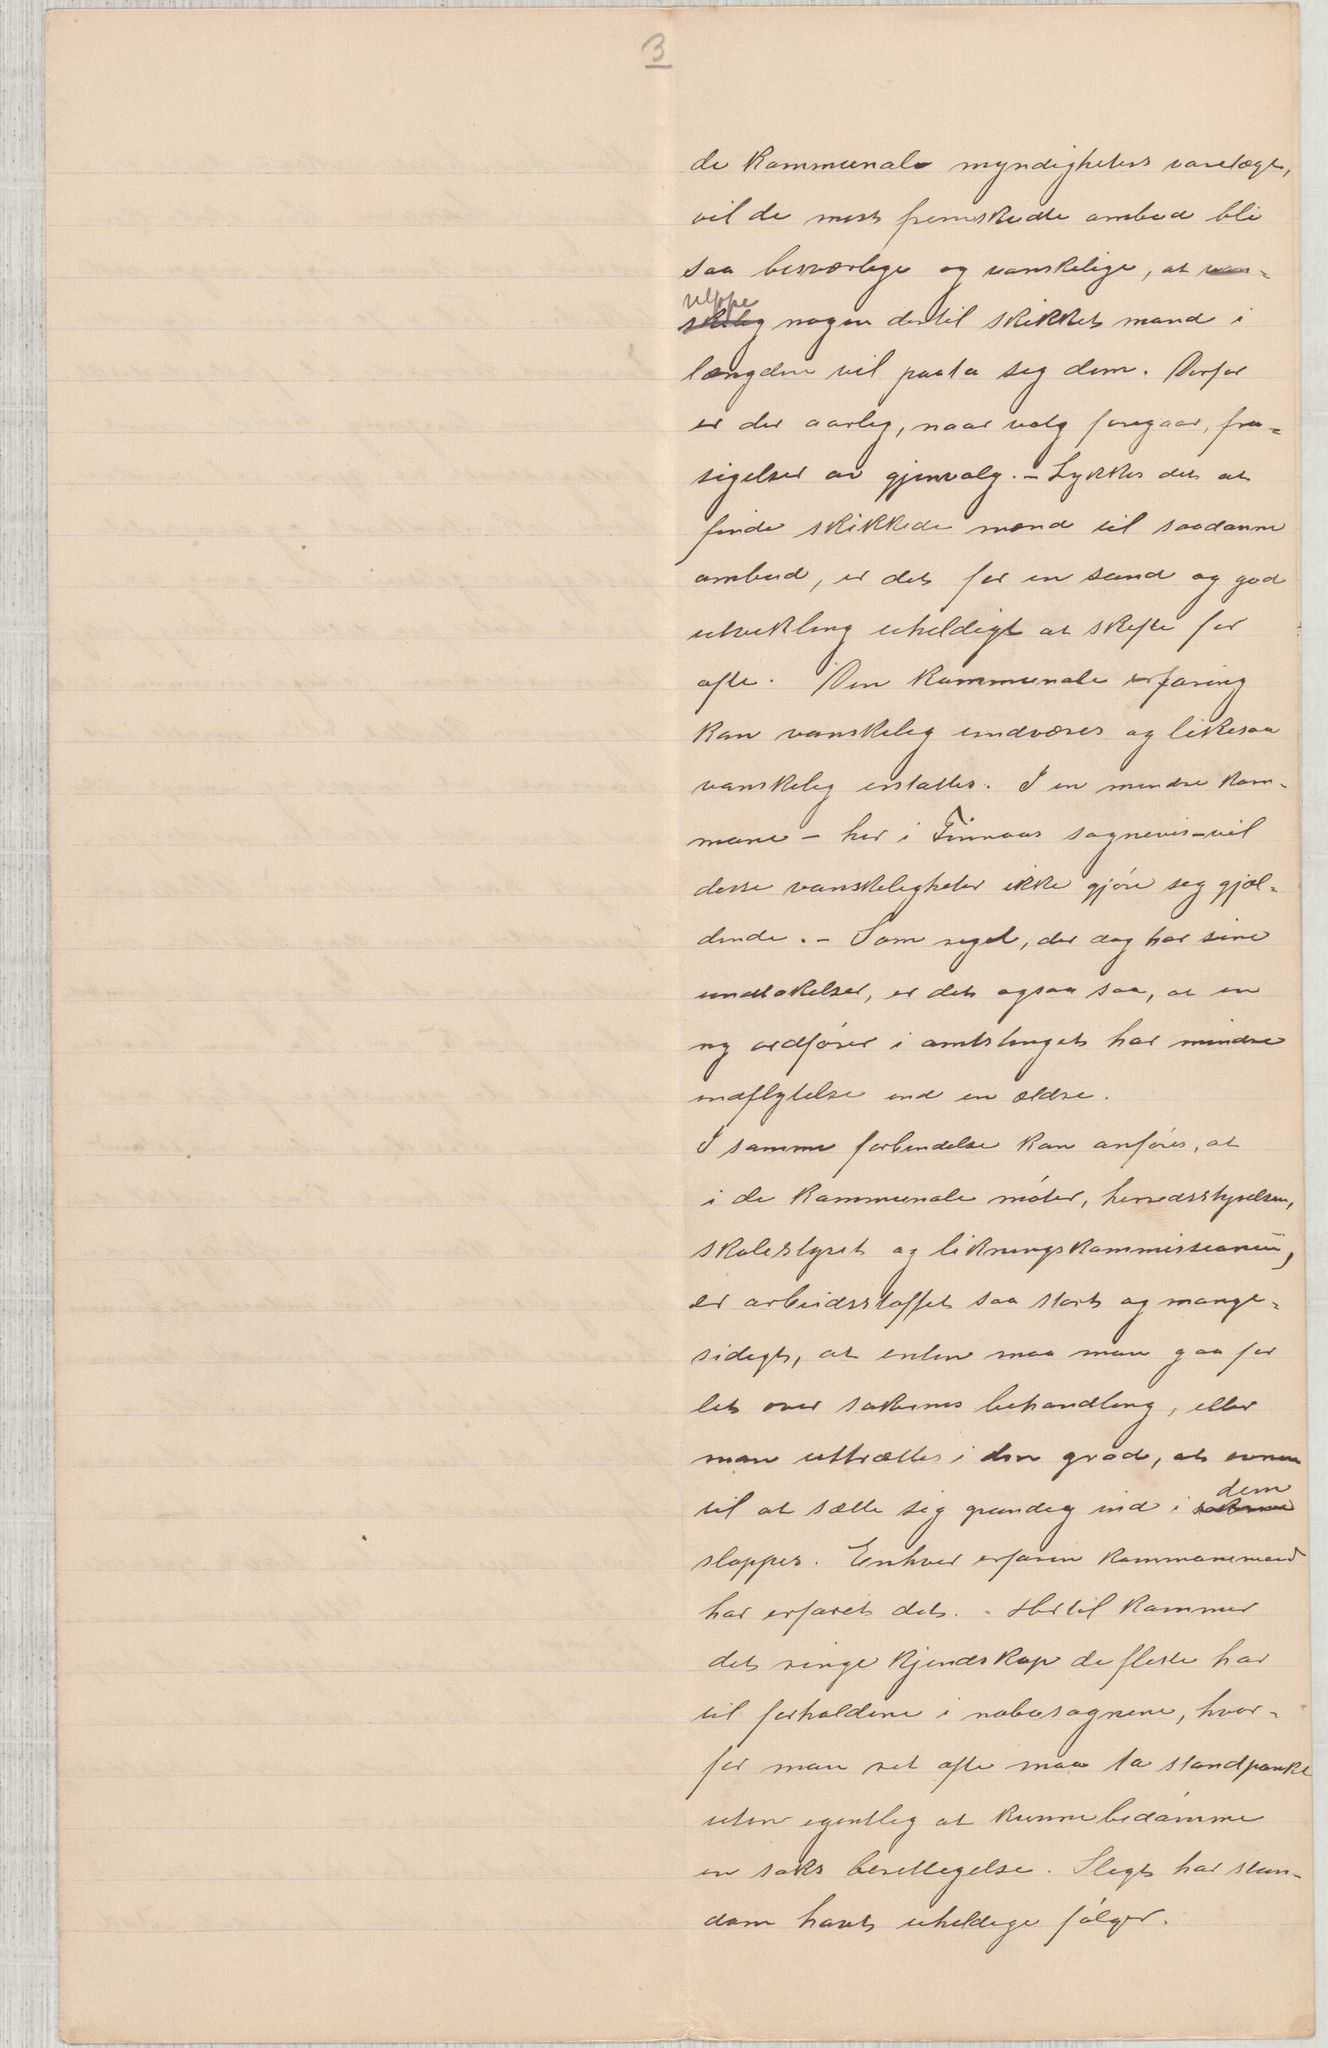 3
de kommunale myndigheters varetægt,
vil de mest fremskudte ombud bli
saa besværlige og vanskelige, at van-
skelig neppe nogen dertil skikket mand i
længden vil paata sig dem. Derfor
er der aarlig, naar valg foregaar, fra-
sigelser av gjenvalg. - Lykkes det at
finde skikkede mænd til saadanne
ombud, er det for en sund og god
utvikling uheldigt at skifte for
ofte. Den kommunale erfaring
kan vanskelig undværes og likesaa
vanskelig erstattes. I en mindre kom-
mune - her i Finnaas sognevis - vil
disse vanskeligheter ikke gjøre sig gjæl-
dende. - Som regel, der dog har sine
undtakelser, er det ogsaa saa, at en
ny ordfører i amtstinget har mindre
indflytelse end en ældre.
I samme forbindelse kan anføres, at
i de kommunale møter, herredsstyrelsen,
skolestyret og likningskommissionen,
er arbeidsstoffet saa stort og mange-
sidigt, at enten maa man gaa for
let over sakernes behandling, eller
man uttrættes i den grad, at evnen
til at sætte sig grundig ind i sakerne dem
slappes. Enhver erfaren kommunemand
har erfaret det. - Hertil kommer
det ringe kjendskap de fleste har
til forholdene i nabosognene, hvor-
for man ret ofte maa ta standpunkt
uten egentlig at kunne bedømme
en saks berettigelse. Sligt har stun-
dom havt uheldige følger.